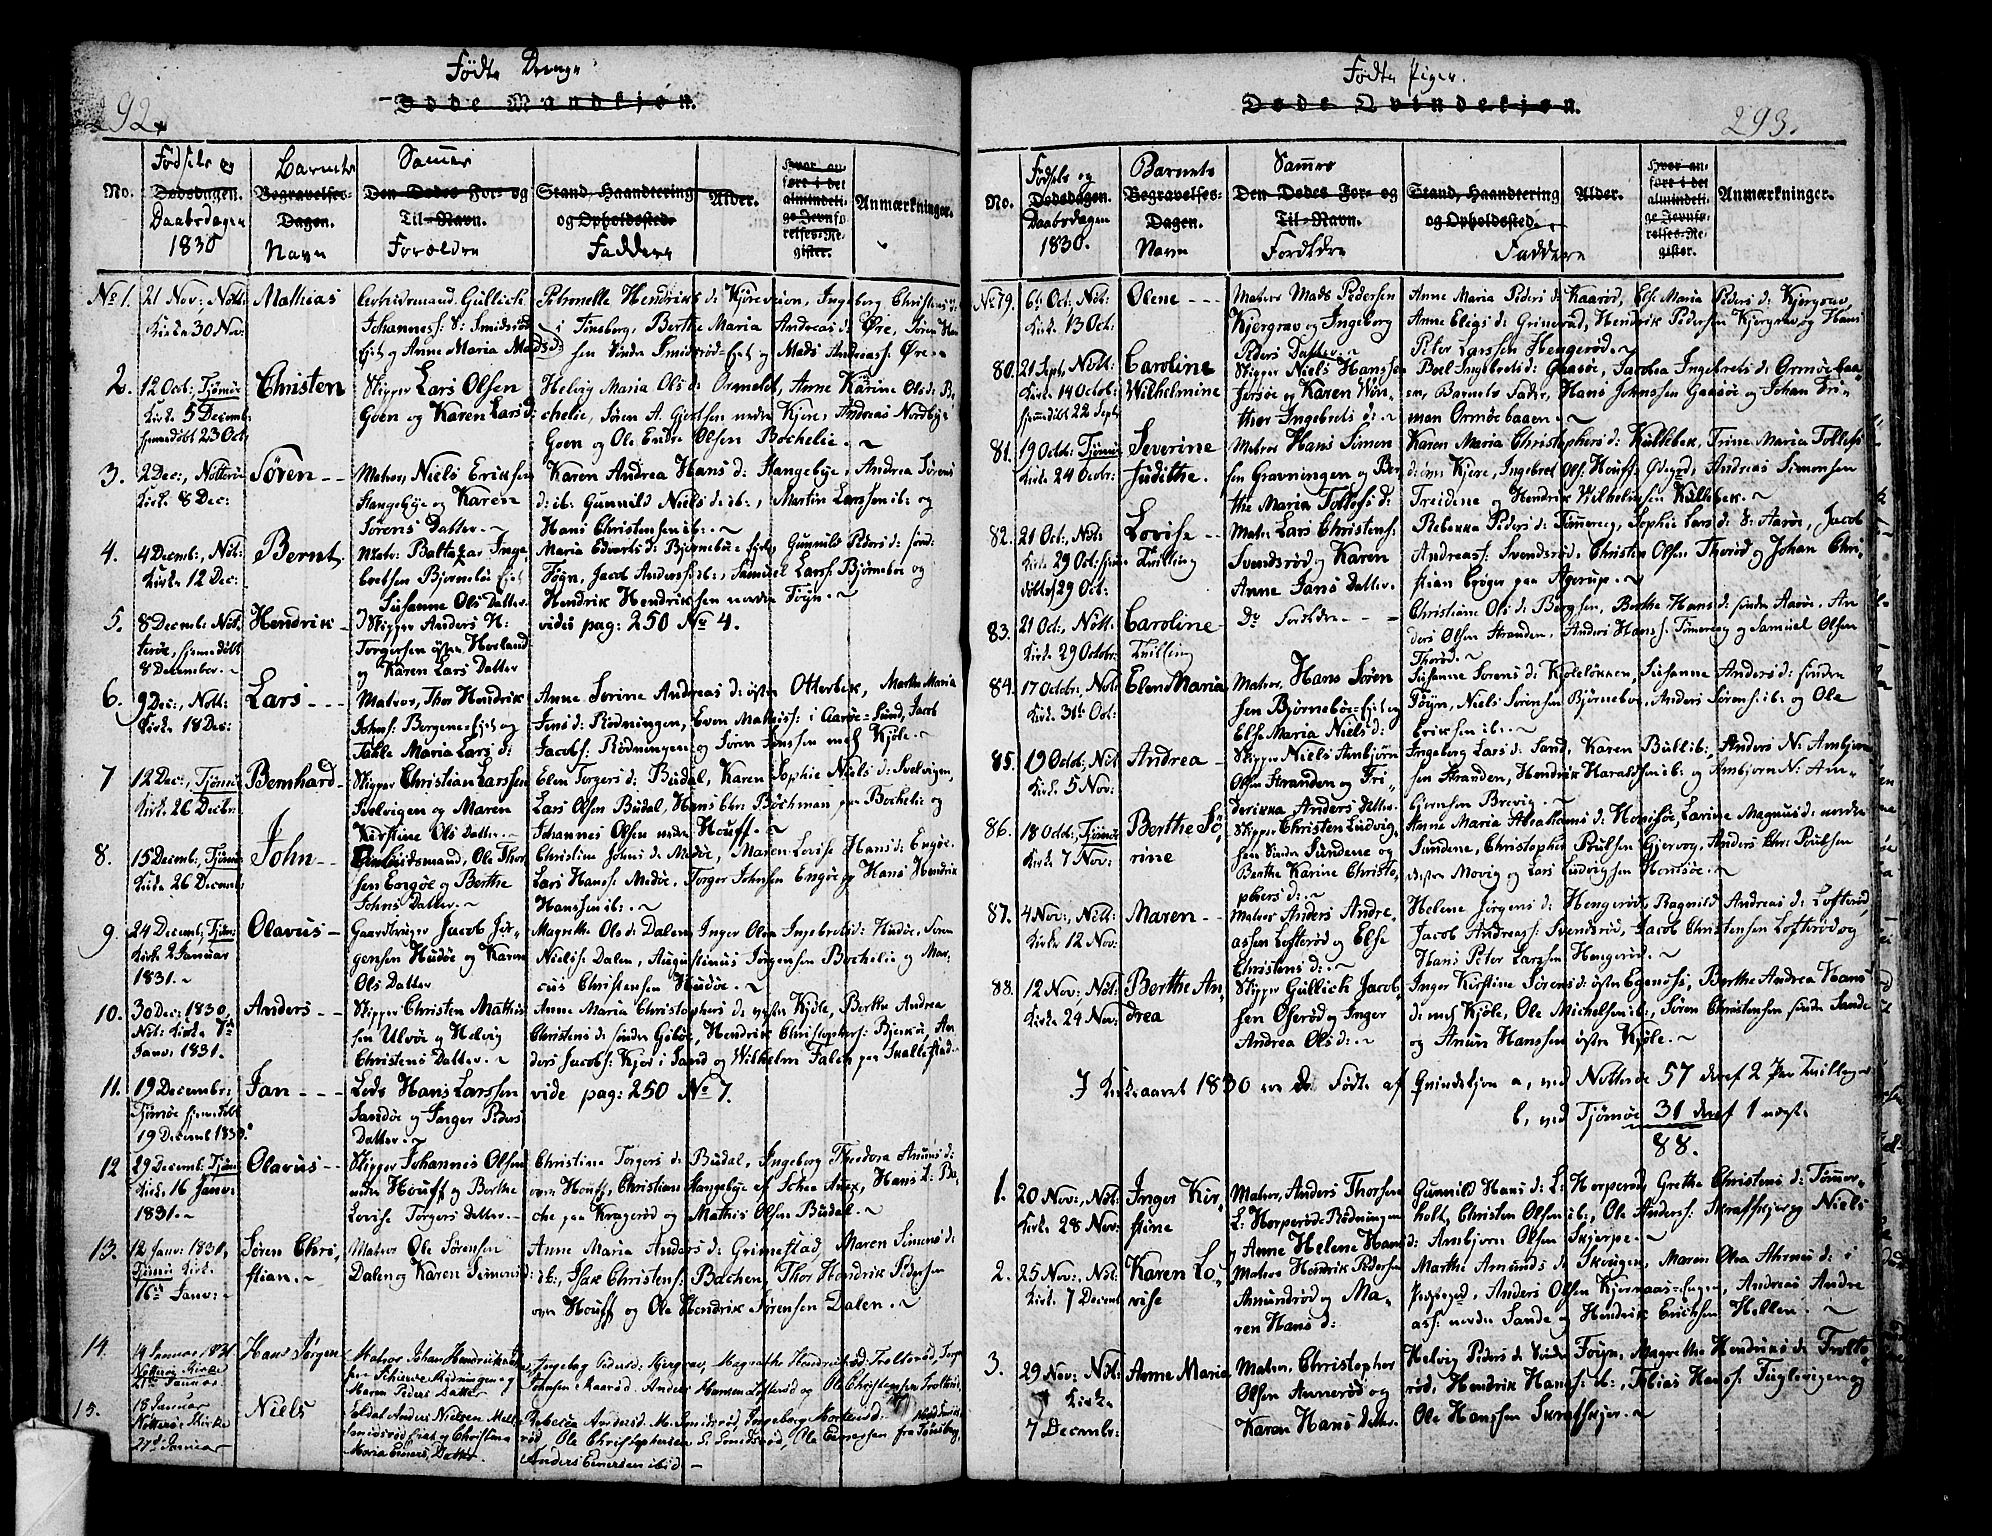 292.
Fødte Drenge
Døde Mandkjøn.
No.
Fødsels og
Dødsdagen.
Daabsdagen
1830
Barnets
Begravelses-
Dagen.
Navn
Sammes
Den Dødes For- og
Til-Navn.
Forældre
Stand, Haandtering
og Opholdssted.
Faddere
Alder.
Hvor an-
ført i det
almindeli-
ge Jevnfø-
relses-Re-
gister.
Anmærkninger.
No 1.
21 Nov:, Nött:
Kirke 30 Nov:
Mathias
Arbeidsmand Gullich
Johanness: S: Smidsröd
Ejet og Anne Maria Mads d:
Petronelle Hendriks d: Kjøreveien, Ingeborg Christens d:
i Tönsberg, Berthe Maria Andreas d: Øre, Sören Han
sen Søndre Smidsröd-Ejet og Mads Andreass: Øre.
2.
12 Oct:, Tjømøe
Kirk. 5 Decemb:
hjemedöbt 23 Oct:
Christen
Skipper Lars Olsen
Goen og Karen Lars d:
Helvig Maria Ols d: Ormelet, Anne Karine Ols d: Bo
chelie, Sören A. Gjertsen nedre Kjære, Andreas Nordbye
Goen og Ole Endre Olsen Bochelie. ~
3.
2 Dec:, Nötterö
Kirk. 8 Dec:
Sören - -
Matros, Niels Eriksen
Hangebye og Karen
Sörens Datter. ~
Karen Andrea Hans d: Hangebye, Andrea Sörens
d: ib: Gunnild Niels d: ib:, Martin Larssen ib: og
Hans Christensen ib: ~
4.
4 Decemb:, Nöt:
Kirke 12 Dec:
Bernt
Matr: Baltazar Inge
bretsen Bjørnebøe Ejet
Susanne Ols Datter
Maria Edvarts d: Bjørnebøe-Ejet, Gunnild Peders d: søndr:
Föyn, Jacob Anderss: ib:, Samuel Larss: Bjørneboe og
Hendrik Hendriksen nordre Föyn. ~
5.
8 Decemb: Nöt.
terøe, hjemedöbt
8 December. ~
Hendrik
Skipper Anders N:
Torgersen östre Hovland
og Karen Lars Datter
vides pag: 250 No 4.
6.
9 Dec:, Nött:
Kirke 18 Dec:
Lars - - -
Matros, Thor Hendrik
Johns: Borgene-Ejet og
Tahle Maria Lars d:
Anne Sörine Andreas d: östre Otterbek, Marthe Maria
Jens d: Rödningen, Even Mathiss: i Aaröe-Sund, Jacob
Jacobs: Rödningen og Sören Jenssen mel Kjöle. ~
7
12 Dec:, Tjømøe
Kirk. 26 Decbr:
Bernhard
Skipper Christian Larssen
Sælvigen og Maren
Kirstine Ols Datter. ~
Elen Torgers d: Budal, Karen Sophie Niels d: Sælvigen,
Lars Olsen Budal, Hans Chr: Böchman paa Bochelie og
Johannes Olsen nedre Houff. ~
8.
15 Decemb:, Tjømøe
Kirke 26 Decemb:
John
Arbeidsmand, Ole Thor
sen Engöe og Berthe
Johns Datter. ~
Christine Johns d: Medöe, Maren Lovise Hans d: Engöe,
Lars Hanss: Medöe, Torger Johnsen Engöe og Hans Hendrik
Hanssen ib: ~
9.
24 Decemb:, Tjøm:
Kirk. 2 Januar
1831. ~
Olavus
Gaardbruger Jacob Jör-
gensen Hudöe og Karen
Ols Datter
Magrethe Ols d: Dalen, Inger Olea Ingebrets d: Hudöe, Sören
Nielss: Dalen, Augustinus Jörgensen Bochelie og Mar-
cus Christensen Hudöe. ~
10.
30 Dec: 1830,
Nöt: Kirke 7de
Janv: 1831.
Anders - -
Skipper Christen Mathis
sen Ulvöe og Helvig
Christens Datter. ~
Anne Maria Christophers d: vestre Kjöle, Berthe Andrea
Christens d: søndre Gibøe, Hendrik Christophers: Bjerköe, An
ders Jacobs: Kjøe i Sand og Wilhelm Falch paa Snallestad.
11.
19 Decembr:
Tjømøe
19 Decemb 1830.
Jan - - -
Lods Hans Larssen
Sandöe og Inger Peders
Datter. ~
vide pag: 250 No 7.
12
29 Decemb: Tjømøe
Kirk. 16 Janv:
1831. ~
Olavus - -
Skipper Johannes Olsen
nedre Houff og Berthe
Lovise Torgers Datter. ~
Christine Torgers d: Budal, Ingeborg Theodora Anuns d:
övre Houff, Christian Hangebye
che paa Kragerød og Mathis Olsen Budal. ~
13.
12 Janv: 1831,
Tjømøe Kirk.
16de Janv: ~
Sören Chri-
stian. ~
Matros Ole Sörensen
Dalen og Karen Simens d:
Anne Maria Anders d: Grimestad, Maren Simens d:
ib:, Isak Christens: Bachen, Thor Hendrik Peders en
övre Houff og Ole Hendrik Sörensen Dalen. ~
14.
4 Januar 1831
Nötterö Kirke
21de Januar
Hans Jørgen
Matros Johan Hendrik
Rödningen og
Karen Peders Datter
Ingeborg Pedersd: Kjergrav, Magrethe Hendriksd: Trolteröd,
Johnsen Kaaröd, Anders Hansen Lofteröd og Ole Christensen Trolteröd
15.
18 Januar
Nötterøe Kirke
27de Januar
Niels
Anders Nielsen Mell:
Smidsröd Eiet og Christine
Maria Einers Datter.
Rebecca Andersd: M: Smidsröd, Ingeborg
röd, Ole Christophersen S: Smidsröd, Ole Einersen fra Tönsberg,
Anders Einersen ibid ~
Fødte Piger.
Døde Qvindekjøn.
293.
No.
Fødsels og
Dødsdagen.
Daabsdagen
1830.
Barnets
Begravelses-
Dagen.
Navn
Sammes
Den Dødes For- og
Til-Navn.
Forældre
Stand, Haandtering
og Opholdssted.
Faddere
Alder.
Hvor an-
ført i det
almindeli-
ge Jevnfø-
relses-Re-
gister.
Anmærkninger.
No 79.
6te Oct: Nöt:
Kirke 13 Oct:
Olene - - -
Matros Mads Pedersen
Kjergrav og Ingeborg
Peders Datter. ~
Anne Maria Peders d: Kaaröd, Else Maria Peders d: Kjergrav,
Anne Elias d: Grinderød, Hendrik Pedersen Kjergrav og Hans
Peter Larssen Hengeröd. ~
80.
21 Sept, Nött:
Kirke 14 Octob:
hjemedöbt 22 Septr
Caroline
Wilhelmine
Skipper Niels Hanssen
Jersøe og Karen Win-
ther Ingebrets d: ~
Boel Ingebrets d: Gaasøe, Jacobia Ingebrets d: Ormöebaa-
en, Barnets Fader, Hans Johnssen Gaasøe og Johan Fri-
man Ormöebaaen. ~
81.
19 Octb: Tjømøe
Kirke 24 Octbr:
Severine
Judithe.
Matros Hans Simon
sen Gravningen og Ber
the Maria Tollefs d:
Karen Maria Christophers d: Kullebek, Trine Maria Tollefs
d: nedre Kjere, Ingebret Ols: Houff-Ødegrd, Andreas Simonsen
Treidene og Hendrik Wilhelmsen Kullebek. ~
82.
21 Oct:, Nöt:
Kirke 29 Oct: hjem
döbt 29 Oct:
Lovise - -
Tvilling
Matr: Lars Christens:
Svendsröd og Karen
Anne Jans Datter. ~
Rebekka Peders d: Tömmeröe, Sophie Lars d: S: Aaröe, Jacob
Andreass: Svendsröd, Christen Olsen Thoröd og Johan Chri-
stian Crøger paa Agerup. ~
83.
21 Oct:, Nött:
Kirke 29 Octobr:
Caroline
Tvilling
Do Forældre - - -
Christiane Ols d: Bergsen, Berthe Hans d: søndre Aaröe, An
ders Olsen Stranden, Anders Hanss: Tömeröe og Samuel Olsen
Thoröd. ~
84.
17 Octobr:, Nöt:
Kirke 31te Oct:
Elen Maria
Matros, Hans Sören
sen Bjørnebøe-Ejet og
Else Maria Niels d:
Susanne Sörens d: Kjøleløkken, Susanne Anders d: søndre
Föyn, Niels Sörensen Bjørneboe, Anders Sörens: ib: og Ole
Eriksen ib: ~
85.
19 Octb:, Nöt
Kirk. 5 Nov:
Andrea -
Skipper Niels Ambjørn
Olsen Stranden og Fri-
derikka Anders Datter.
Ingeborg Lars d: Sand, Karen Bull ib:, Anders N: Ambjørn
sen Stranden, Hendrik Haraldsen ib: og Ambjørn N: Am-
bjørnsen Brevig. ~
86.
18 Octb:, Tjømøe
Kirke 7 Nov:
Berthe Sö-
rine
Skipper Christen Ludvig
sen Søndre Sundene og
Berthe Karine Christo-
phers d: ~
Anne Maria Abrahams d: Honnsöe, Larine Magnus d: nordre
Sundene, Christopher Poulsen Gjervog, Anders Chr: Poulsen
Movig og Lars Ludvigsen Honnsöe. ~
87.
4 Nov:, Nöt:
Kirk 12 Nov:
Maren - -
Matros Anders Andre-
assen Lofteröd og Else
Christens d: ~
Helene Jörgens d: Hengeröd, Ragnild Andreas d: Lofteröd,
Jacob Andreass: Svendsröd, Jacob Christensen Lofteröd og
Hans Peter Larssen Hengeröd. ~
88.
12 Nov:, Nöt:
Kirk 24 Nov:
Berthe An-
drea
Skipper Gullich Jacob-
sen Oseröd og Inger
Andrea Ols d: ~
Inger Kirstine Sörens d: östre Egenæss, Berthe Andrea Hans
d: mel Kjöle, Ole Michelsen ib:, Sören Christensen søndre Sande
og Anun Hanssen östre Kjöle. ~
I Kirkeaaret 1830 ere da Födte af Quindekjön a, ved Nötteröe 57 deraf 2 Par Tvillinger
b, ved Tjømøe 31 deraf 1 uægte
88.
1.
20 Nov:, Nöt:
Kirke 28 Nov:
Inger Kir-
stine
Matros, Anders Thorsen
L: Horperöd: Rödningen
og Anne Helene Hans d:
Gunnild Hans d: L: Horperöd, Grethe Christens d: Tömmer-
holt, Christen Olsen ib:, Ole Anderss: Skrafskjer og Niels
Ambjørn Olsen Skjerpe. ~
2.
25 Nov:, Nöt:
Kirk. 7 Decemb
Karen Lo-
vise
Matros Hendrik Pedersen
Amundröd og Ma-
ren Hans d:
Marthe Amunds d: Skougen, Maren Olea Ahrens d: i
Præstegrd, Anders Olsen Kjernaas-Hagen, Andreas Andre
ass: nordre Sande og Hendrik Erichsen Hellen. ~
3.
29 Nov: Nöt:
Kirke
7 Decembr:
Anne Maria
Matros, Christopher
Olsen Anneröd og
Karen Hans datter.
Helvig Peders d: Søndre Föyn, Magrethe Hendriks d: Trolte-
röd, Hendrik Hanss: ib:, Tobias Hanss: Fuglevigen og
Ole Hanssen Skrafskjer. ~